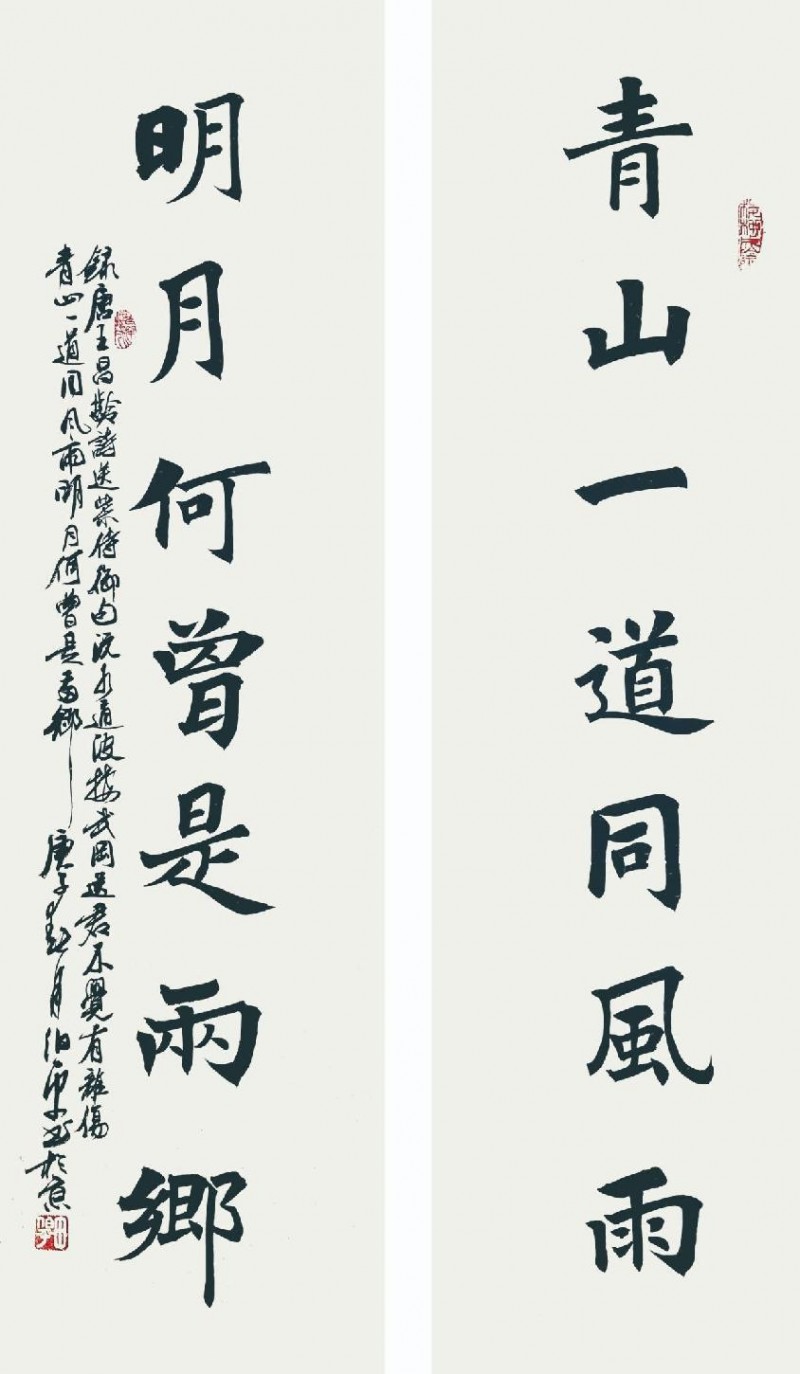 青山一道同風雨
明月何曾是兩鄉
録唐王昌齡詩送柴侍御句沅水通波接武岡送君不覺有離傷
青山一道同風雨明月何曾是兩鄉庚子春月伯京書於京